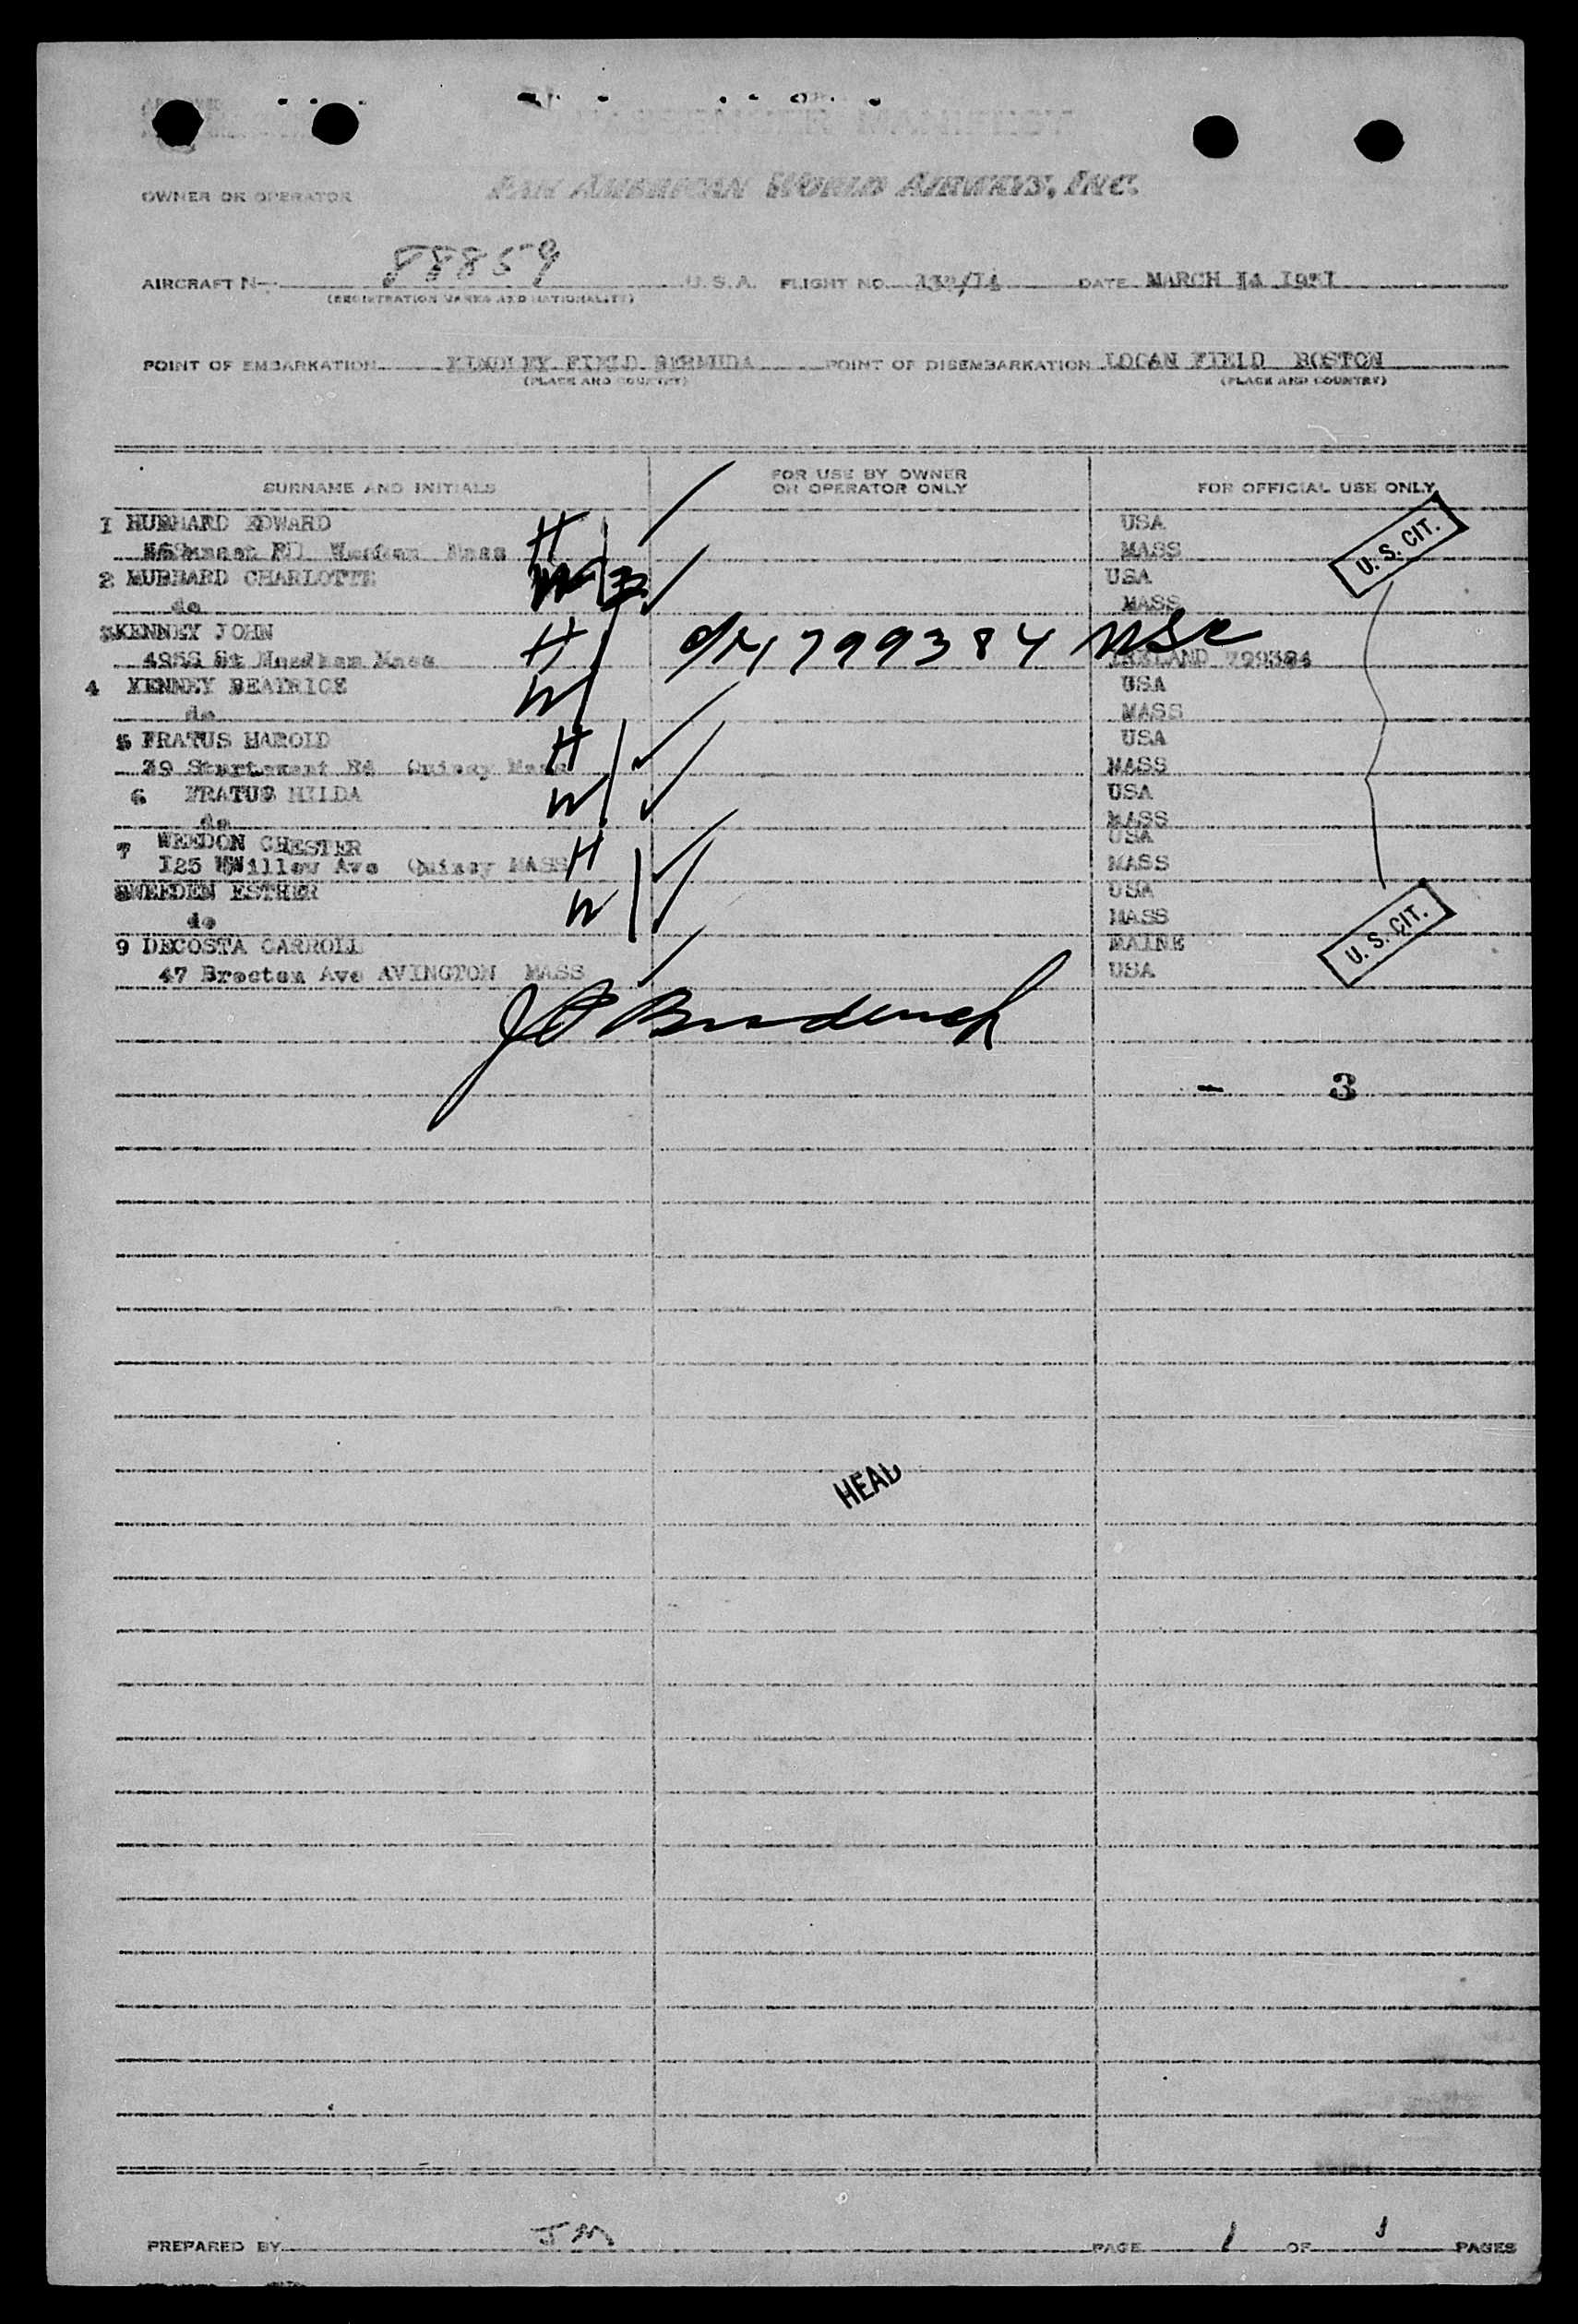 PASSENGER MANIFEST
OWNER OR OPERATOR PAN AMERICAN WORLD AIRWAYS, INC.
AIRCRAFT N- 88859 U.S.A. FLIGHT NO. DATE MARCH 14 1951
(REGISTRATION MARKS AND NATIONALITY)
POINT OF EMBARKATION KINDLEY FIELD BERMUDA POINT OF DISEMBARKATION LOGAN FIELD BOSTON
(PLACE AND COUNTRY) (PLACE AND COUNTRY)
SURNAME AND INITIALS FOR USE BY OWNER OR OPERATOR ONLY FOR OFFICIAL USE ONLY
1 HUBBARD EDWARD H USA
Mass MASS
U. S. CIT.
2 HUBBARD CHARLOTTE USA
do MASS
3 KENNEY JOHN H 799384
St Needham Mass IRELAND 799384
4 KENNEY BEATRICE W USA
do MASS
5 FRATUS HAROLD H USA
39 Sturtevant Rd Quincy Mass MASS
6 FRATUS HILDA W USA
do MASS
7 WEEDON CHESTER H USA
I25 WWillow Ave Quincy MASS MASS
8WEEDEN ESTHER W USA
do MASS
9 DECOSTA CARROLL MAINE
47 Brocton Ave AVINGTON MASS USA
U. S. CIT.
- 3
HEAD
PREPARED BY JM PAGE 1 OF 1 PAGES